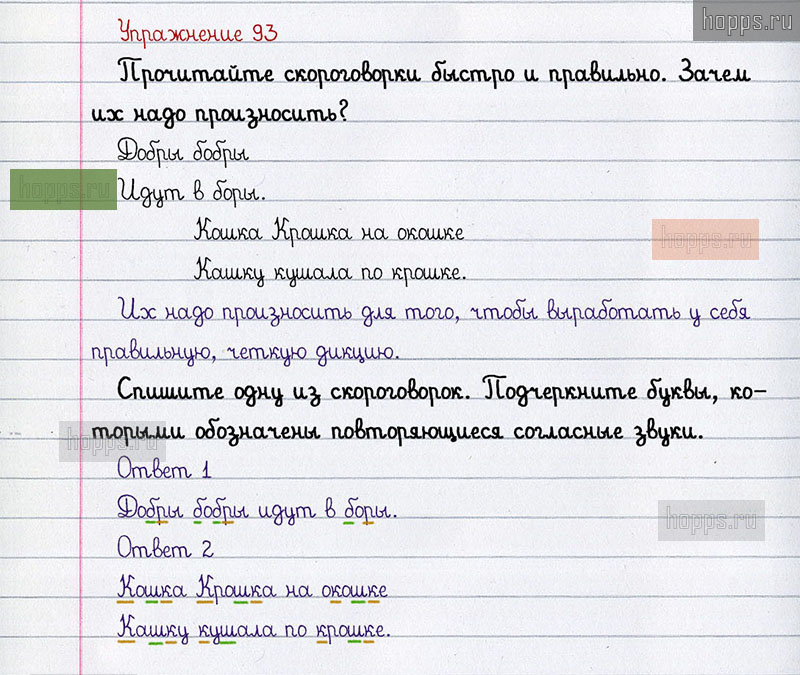 hopps.ru
Упражнение 93
Прочитайте скороговорки быстро и правильно. Зачем
их надо произносить?
Добры бобры
hopps.ru
Идут в боры.
Кашка Крошка на окошке
hopps.ru
Кашку кушала по крошке.
Их надо произносить для того, чтобы выработать у себя
правильную, четкую дикцию.
Спишите одну из скороговорок. Подчеркните буквы, ко-
торыми обозначены повторяющиеся согласные звуки.
hopps.ru
Ответ 1
Добры бобры идут в боры.
hopps.ru
Ответ 2
Кашка Крошка на окошке
Кашку кушала по крошке.